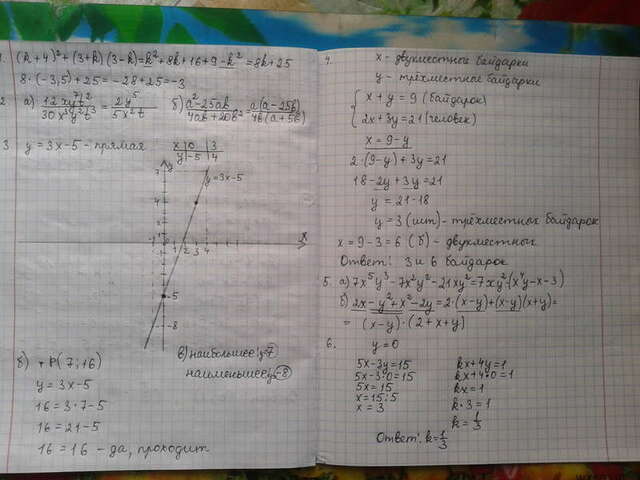 1. (k+4)² + (3+k)(3-k) = k² + 8k + 16 + 9 - k² = 8k + 25
8·(-3,5) + 25 = -28 + 25 = -3
2 а) 12xy⁷t² / 30x³y²t³ = 2y⁵ / 5x²t б) a² - 25ab / 4ab + 20b² = a(a - 25b) / 4b(a + 5b)
3 y = 3x - 5 - прямая
x | 0 | 3
y | -5 | 4
y
7
y = 3x-5
4
-1 2 3 4 x
-5
-8
б) P(7; 16)
y = 3x - 5
16 = 3·7 - 5
16 = 21 - 5
16 = 16 - да, проходит
в) наибольшее y=7
наименьшее y=-8
4. x - двухместные байдарки
y - трёхместные байдарки
{ x + y = 9 (байдарок)
2x + 3y = 21 (человек)
x = 9 - y
2·(9-y) + 3y = 21
18 - 2y + 3y = 21
y = 21 - 18
y = 3 (шт) - трёхместных байдарок
x = 9 - 3 = 6 (б) - двухместных
Ответ: 3 и 6 байдарок
5. а) 7x⁵y³ - 7x²y² - 21xy² = 7xy²·(x⁴y - x - 3)
б) 2x - y² + x² - 2y = 2·(x-y) + (x-y)(x+y) =
= (x-y)·(2 + x + y)
6. y = 0
5x - 3y = 15
5x - 3·0 = 15
5x = 15
x = 15:5
x = 3
kx + 4y = 1
kx + 4·0 = 1
kx = 1
k·3 = 1
k = 1/3
Ответ: k = 1/3